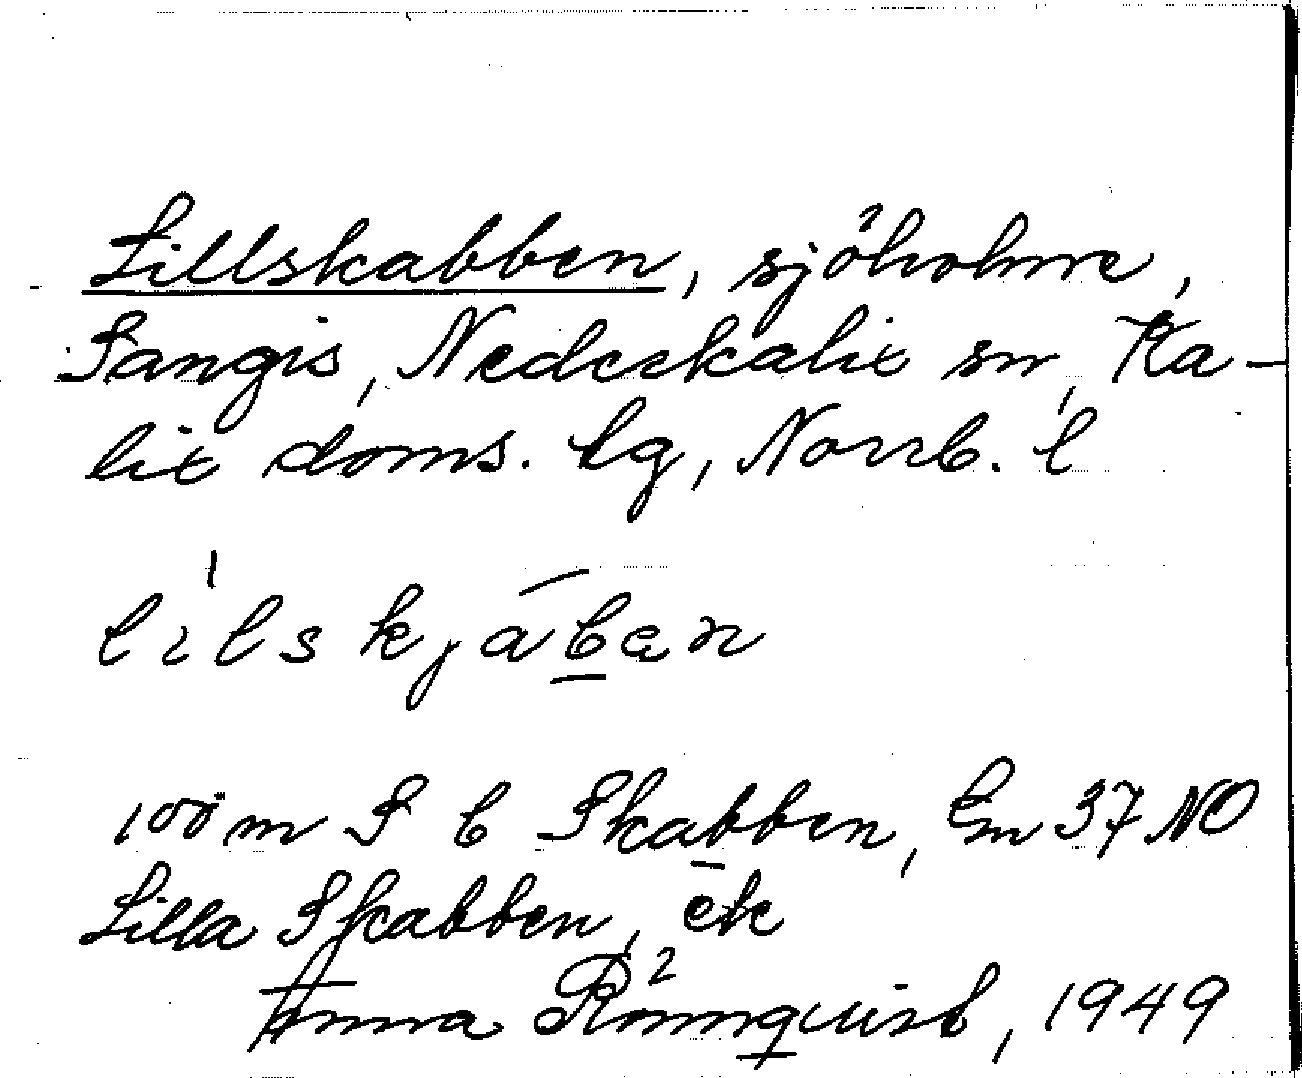 Lillskabben, sjöholme,
Sangis, Nederkalix sn, Ka-
lix doms. lg, Norrb. l
lilskjaban
100 m S Skabben, 37 NO
Lilla Skabben, ek
Anna Rönnquist, 1949